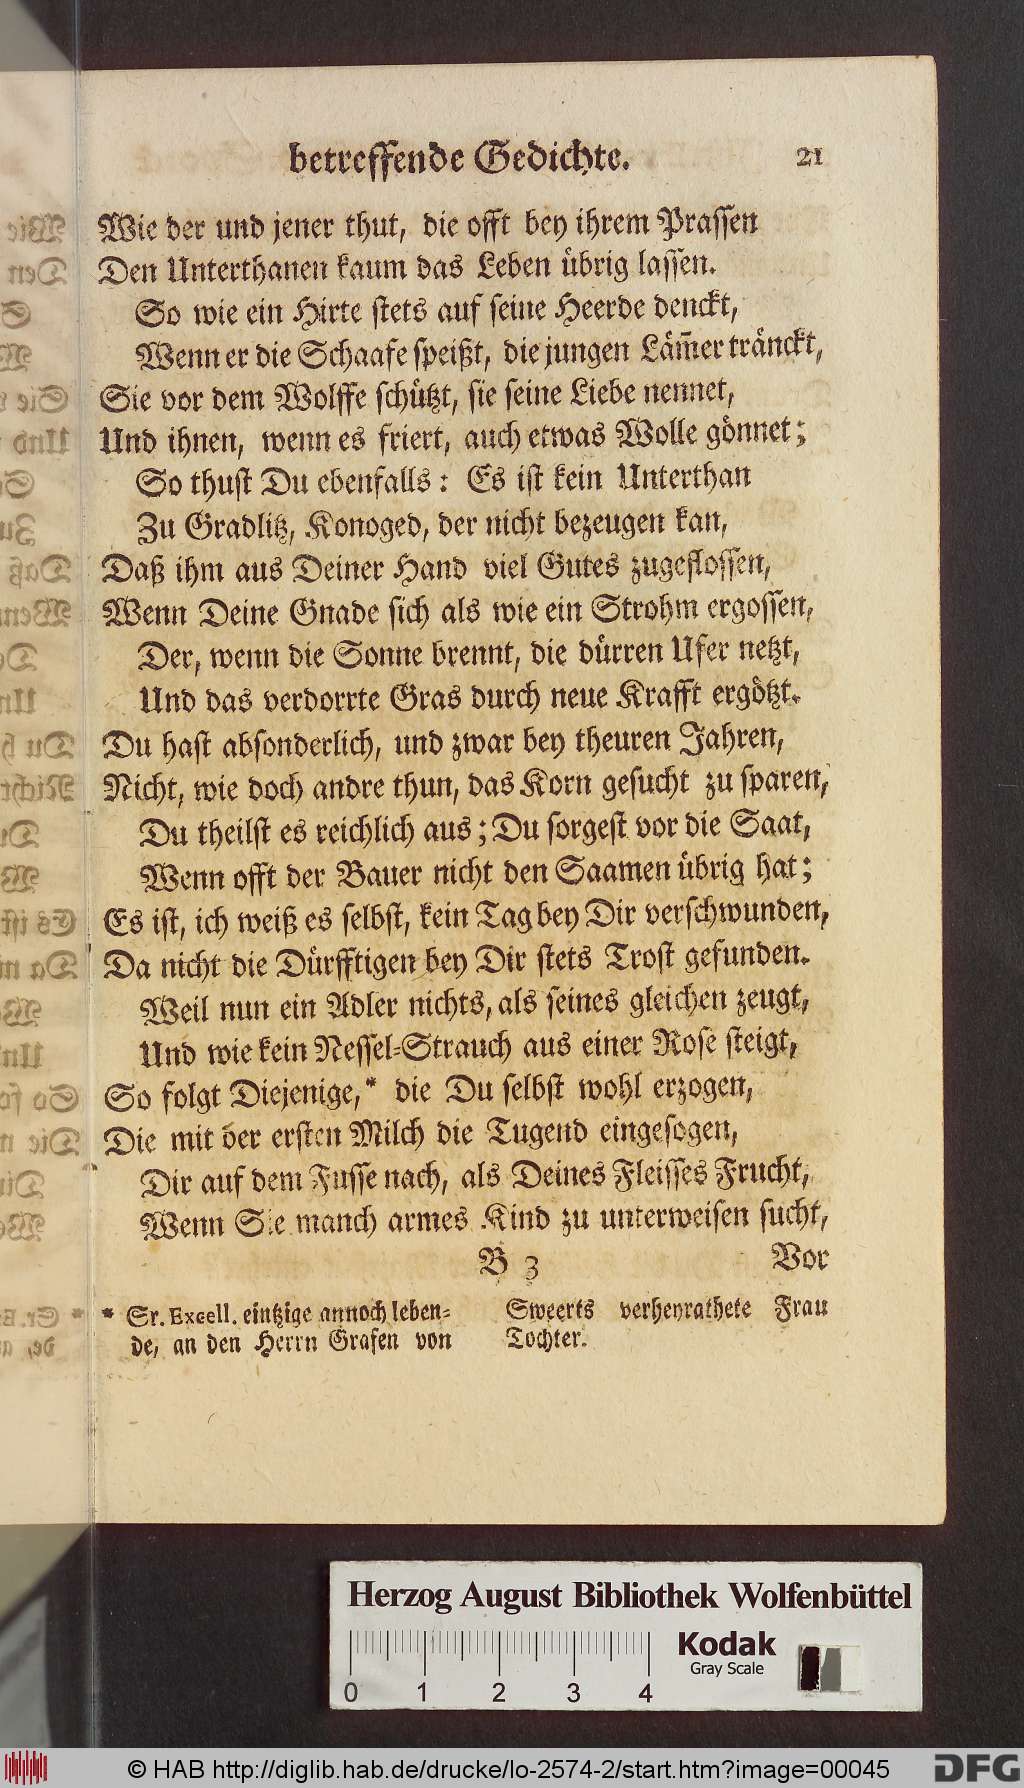 betreffende Gedichte. 21
Wie der und jener thut, die offt bey ihrem Prassen
Den Unterthanen kaum das Leben übrig lassen.
So wie ein Hirte stets auf seine Heerde denckt,
Wenn er die Schaafe speißt, die jungen Läm̃er tränckt,
Sie vor dem Wolffe schützt, sie seine Liebe nennet,
Und ihnen, wenn es friert, auch etwas Wolle gönnet;
So thust Du ebenfalls: Es ist kein Unterthan
Zu Gradlitz, Konoged, der nicht bezeugen kan,
Daß ihm aus Deiner Hand viel Gutes zugeflossen,
Wenn Deine Gnade sich als wie ein Strohm ergossen,
Der, wenn die Sonne brennt, die dürren Ufer netzt,
Und das verdorrte Gras durch neue Krafft ergötzt.
Du hast absonderlich, und zwar bey theuren Jahren,
Nicht, wie doch andre thun, das Korn gesucht zu sparen,
Du theilst es reichlich aus; Du sorgest vor die Saat,
Wenn offt der Bauer nicht den Saamen übrig hat;
Es ist, ich weiß es selbst, kein Tag bey Dir verschwunden,
Da nicht die Dürfftigen bey Dir stets Trost gefunden.
Weil nun ein Adler nichts, als seines gleichen zeugt,
Und wie kein Nessel-Strauch aus einer Rose steigt,
So folgt Diejenige,* die Du selbst wohl erzogen,
Die mit der ersten Milch die Tugend eingesogen,
Dir auf dem Fusse nach, als Deines Fleisses Frucht,
Wenn Sie manch armes Kind zu unterweisen sucht,
B 3 Vor
* Sr. Excell. eintzige annoch leben-
de, an den Herrn Grafen von
Sweerts verheyrathete Frau
Tochter.
Herzog August Bibliothek Wolfenbüttel
Kodak
Gray Scale
0 1 2 3 4
© HAB http://diglib.hab.de/drucke/lo-2574-2/start.htm?image=00045
DFG